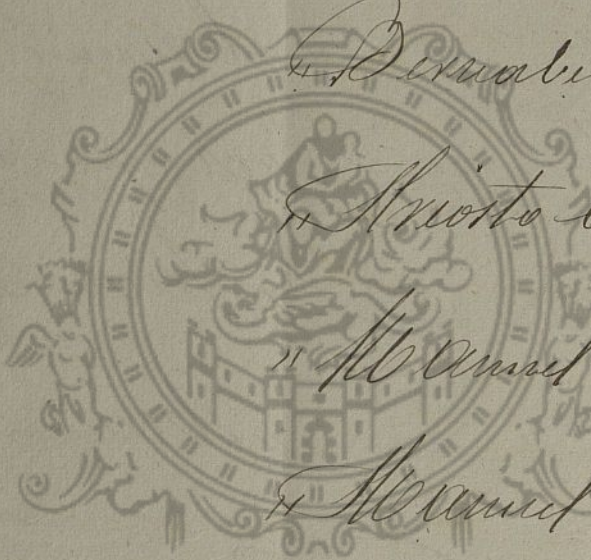 " Bernabé
" Ariosto
" Manuel
" Manuel